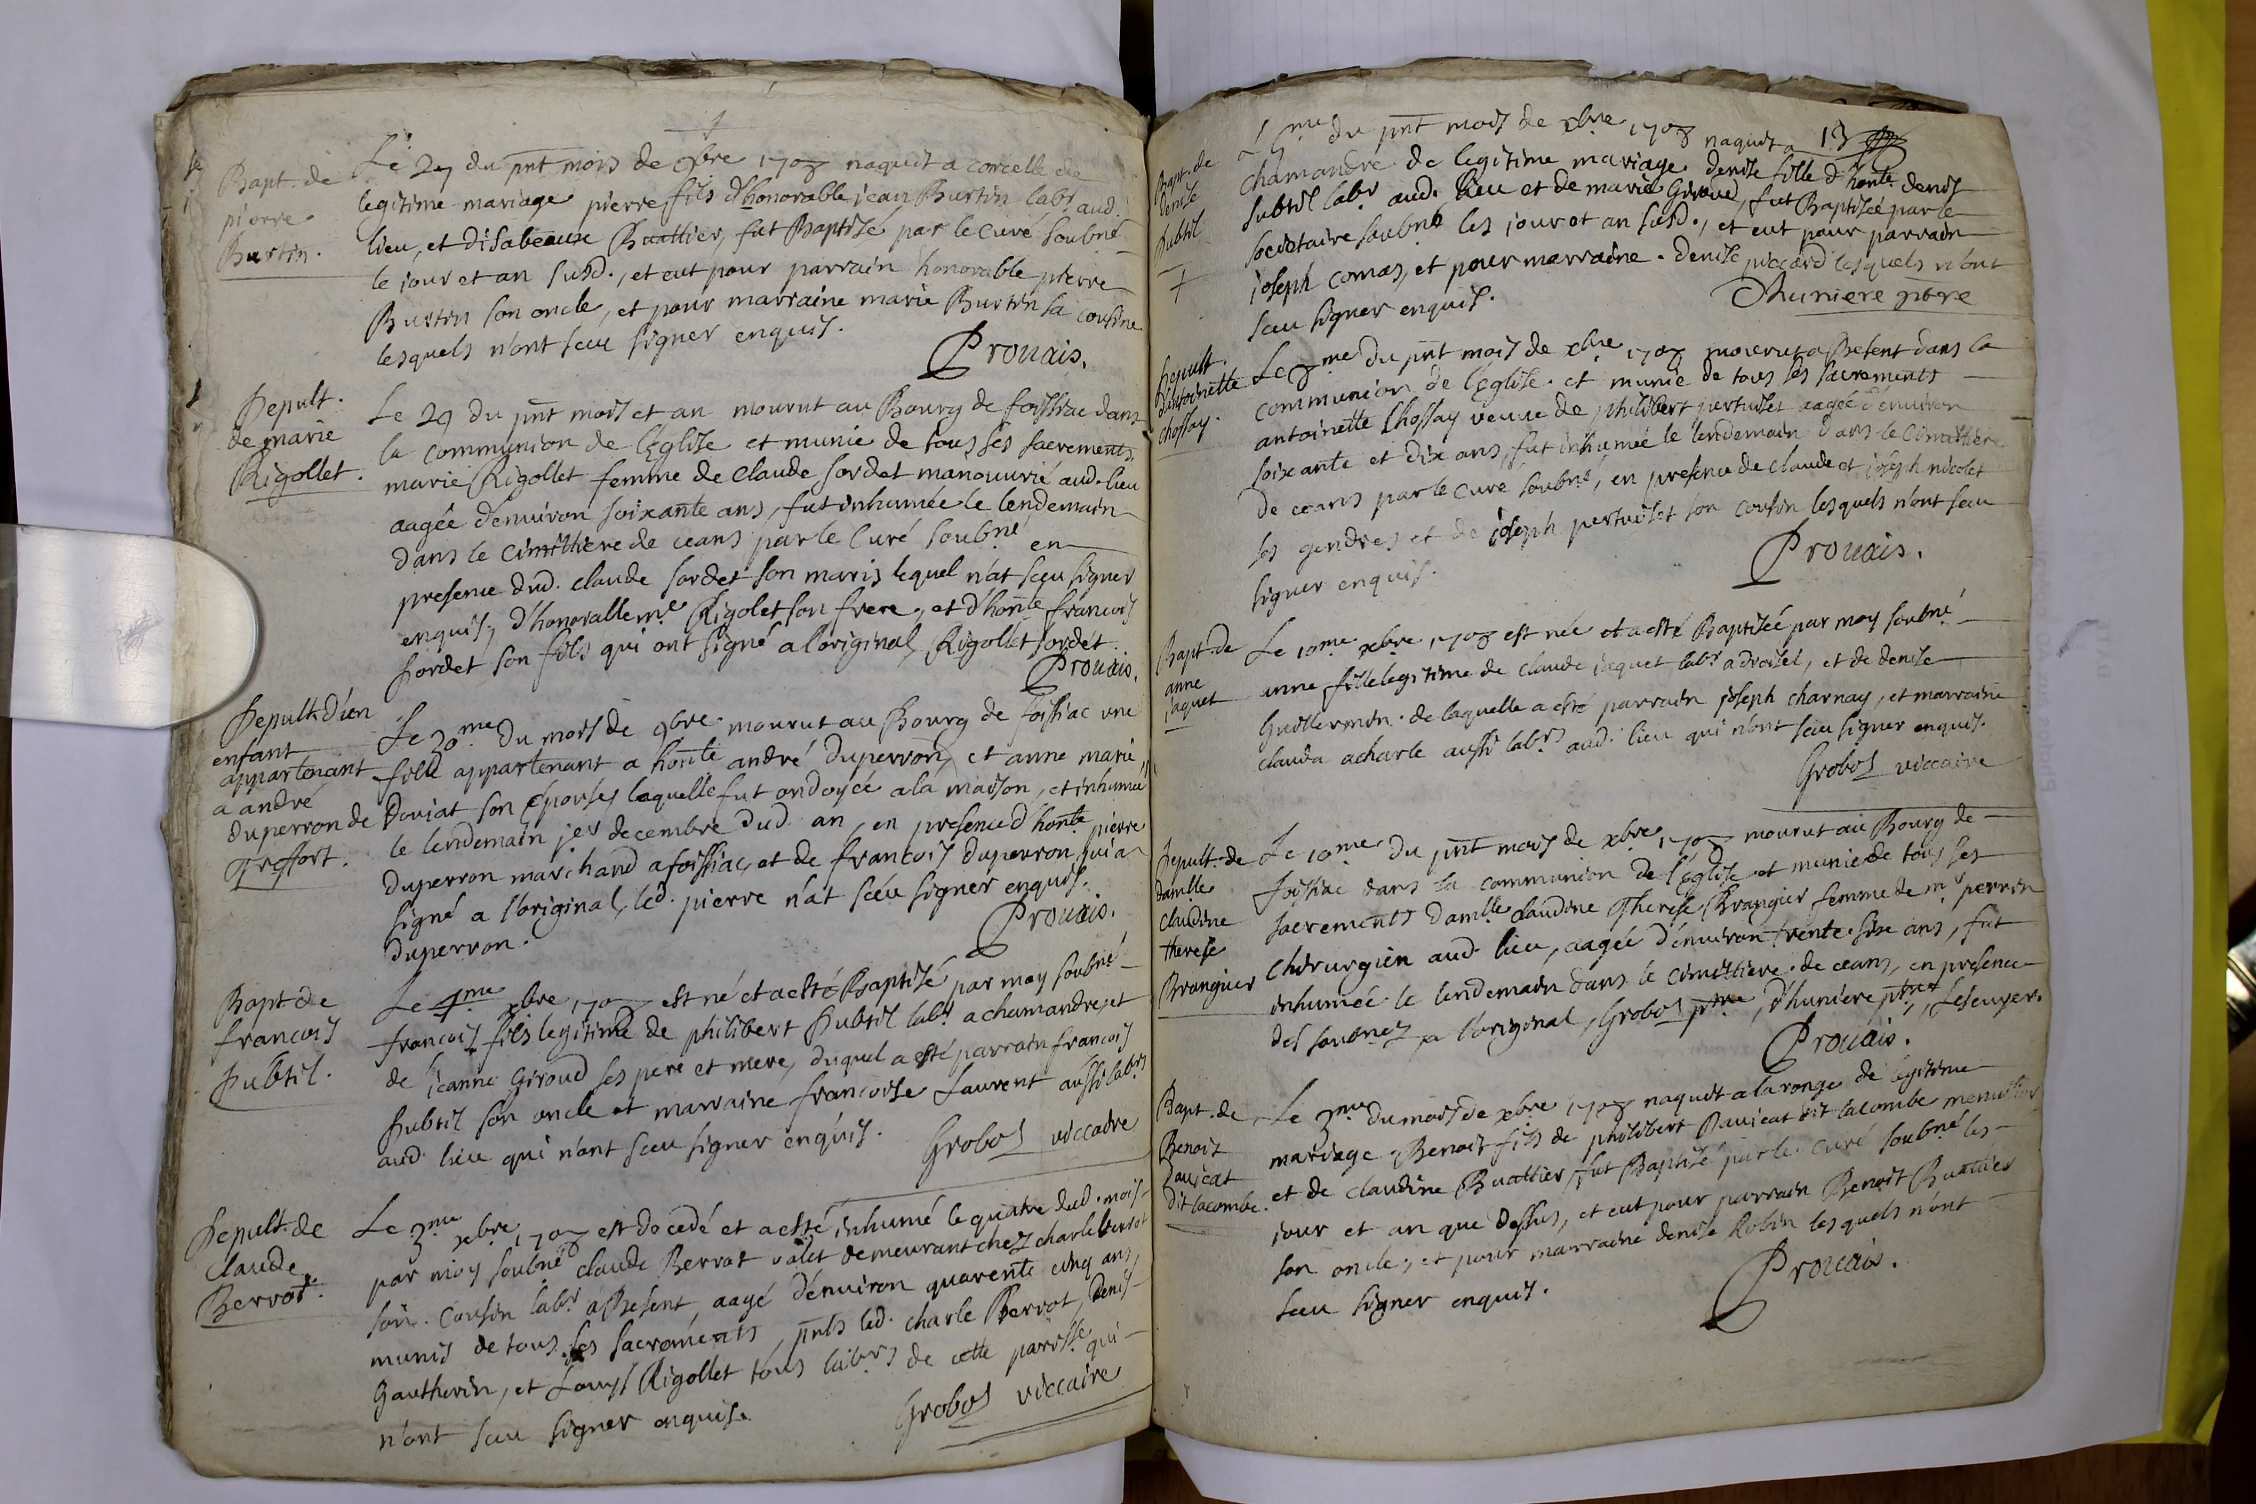 Bapt. de
pierre
Burtin.
Le 27 du pnt mois de 9bre 1708 naquit a corcelle de
legitime mariage pierre fils d'honorable jean Burtin labr aud.
lieu, et disabeaue Buattier, fut Baptisé par le Curé soubné
le jour et an susd., et eut pour parrain honorable pierre
Burtin son oncle, et pour marraine marie Burtin sa cousine
lesquels n'ont sceu signer enquis.
Prouais.
Sepult.
de marie
Rigollet.
Le 29 du pnt mois et an mourut au Bourg de foissiac dans
la communion de l'Eglise et munie de tous ses sacrements
marie Rigollet femme de Claude sordet manouurié aud. lieu
aagée d'enuiron soixante ans, fut inhumée le lendemain
dans le cimittiere de ceans par le Curé soubné en
presence dud. claude sordet son maris lequel n'at sceu signer
enquis, d'honorable me Rigolet son frere, et d'honte francois
sordet son fils qui ont signé a l'original, Rigollet sordet.
Prouais.
Sepult. d'un
enfant
appartenant
a andré
duperron de
Treffort.
Le 30me du mois de 9bre mourut au Bourg de foissiac une
fille appartenant a honte andré duperron, et anne marie
Doriat son epouse, laquelle fut ondoyée a la maison, et inhumée
le lendemain jer decembre dud. an, en presence d'honte pierre
duperron marchand a foissiac, et de francois duperron qui a
signé a l'original, led. pierre n'at sceu signer enquis.
duperron.
Prouais.
Bapt. de
francois
subtil.
Le 4me xbre 1708 est né et a esté Baptisé par moy soubné
francois fils legitime de philibert subtil labr a chamandre, et
de jeanne Giroud ses pere et mere, duquel a esté parrain francois
subtil son oncle et marraine francoise Laurent aussi labrs
aud. lieu qui n'ont sceu signer enquis.
Grobos viccaire
Sepult. de
Claude
Berrot.
Le 3me xbre 1708 est decedé et a esté inhumé le quatre dud. mois
par moy soubné claude Berrot valet demeurant chez charle berrot
son cousin labr a Besent, aagé d'enuiron quarente cinq ans,
munis de tous ses sacrements, pnts led. charle Berrot, denis
Gautherin, et Louys Rigollet tous labrs de cette parisse qui
n'ont sceu signer enquis.
Grobos viccaire
13
Bapt. de
denise
subtil
Le 6me du pnt mois de xbre 1708 naquit a
chamandre de legitime mariage denise fille d'honte denis
subtil labr aud. lieu et de marie Giroud, fut Baptisée par le
societaire soubné les jour et an susd., et eut pour parrain
joseph comas, et pour marraine denise piccard lesquels n'ont
sceu signer enquis.
Dhuniere pbre
Sepult.
d'antoinette
chossay.
Le 8me du pnt mois de xbre 1708 mourut a Besent dans la
communion de l'Eglise et munie de tous ses sacrements
antoinette Chossay veuue de philibert pertuiset aagée d'enuiron
soixante et dix ans, fut inhumée le lendemain dans le cimittiere
de ceans par le curé soubné, en presence de claude et joseph nicolet
ses gendres et de joseph pertuiset son cousin lesquels n'ont sceu
signer enquis.
Prouais.
Bapt. de
anne
jaquet
Le 10me xbre 1708 est née et a esté Baptisée par moy soubné
anne fille legitime de claude jaquet labr a droisel, et de denise
Guillermin de laquelle a esté parrain joseph charnay, et marraine
clauda acharle aussi labrs aud. lieu qui n'ont sceu signer enquis.
Grobos viccaire
Sepult. de
damlle
claudine
therese
Brangier
Le 10me du pnt mois de xbre 1708 mourut au Bourg de
foissiac dans la communion de l'Eglise et munie de tous ses
sacrements damlle claudine Therese Brangier femme de mr perrin
Chirurgien aud. lieu, aagée d'enuiron trente six ans, fut
inhumée le lendemain dans le cimittiere de ceans, en presence
des soubnez a l'original, Grobos ptre, d'huniere ptre, Lescuyer.
Prouais.
Bapt. de
Benoit
Pauicat
dit lacombe.
Le 3me du mois de xbre 1708 naquit a la ronge de legitime
mariage Benoit fils de philibert Pauicat dit lacombe menusier
et de claudine Buattier, fut Baptisé par le curé soubné les
jour et an que dessus, et eut pour parrain Benoit Buattier
son oncle, et pour marraine denise Robin lesquels n'ont
sceu signer enquis.
Prouais.